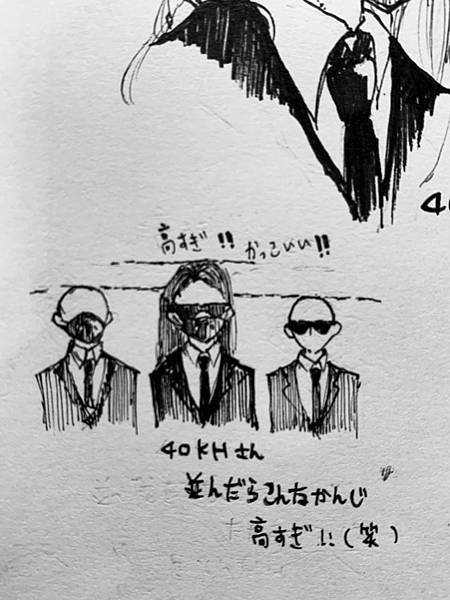 高すぎ!! かっこいい!!
40KHさん
並んだらこんなかんじ
高すぎ!!(笑)